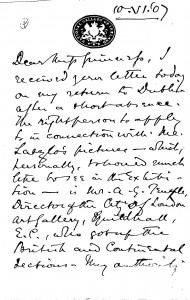 10.VI.07
Dear Miss Purser,
I
received your letter today
on my return to Dublin
after a short absence.
The right person to apply
to in connection with Mr.
pictures — which,
personally, I should much
like to see in the Exhibi-
tion — is Mr. A. G. Temple,
Director of the City of London
Art Gallery, Guildhall,
E.C., who got up the
British and Continental
Sections — My authority